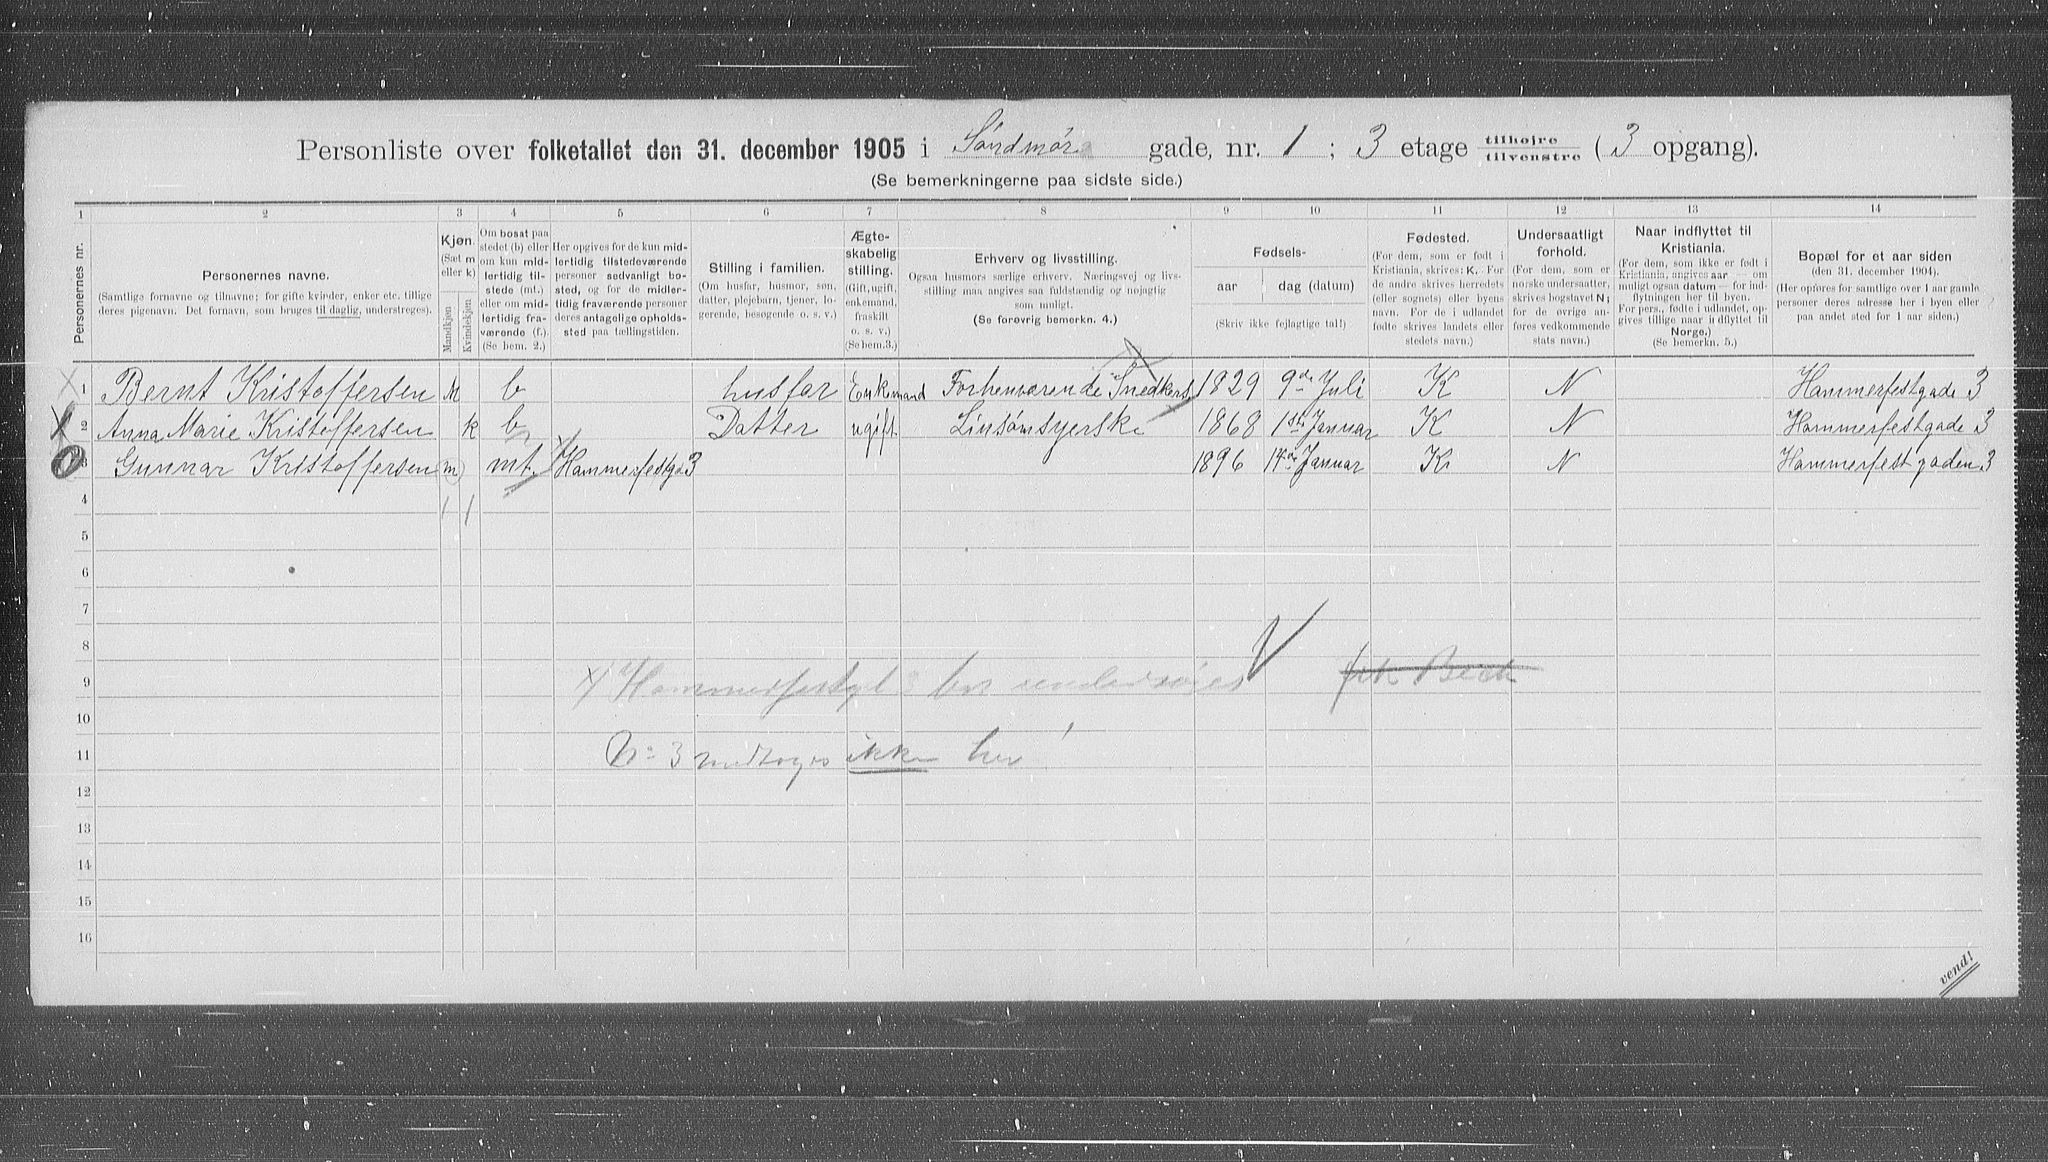 Personliste over folketallet den 31. december 1905 i Søndmør gade, nr. 1 ; 3 etage tilhøjre tilvenstre ( 3 opgang).
(Se bemerkningerne paa sidste side.)
1 2 3 4 5 6 7 8 9 10 11 12 13 14
Personernes nr.
Personernes navne.
(Samtlige fornavne og tilnavne; for gifte kvinder, enker etc. tillige
deres pigenavn. Det fornavn, som bruges til daglig, understreges).
Kjøn.
(Sæt m
eller k)
Mandkjøn
Kvindekjøn
Om bosat paa
stedet (b) eller
om kun mid-
lertidig til-
stede (mt.)
eller om mid-
lertidig fra-
værende (f.)
(Se bem. 2.)
Her opgives for de kun mid-
lertidig tilstedeværende
personer sedvanligt bo-
sted, og for de midler-
tidig fraværende personer
deres antagelige opholds-
sted paa tællingstiden.
Stilling i familien.
(Om husfar, husmor, søn,
datter, plejebarn, tjener, lo-
gerende, besøgende o. s. v.)
Ægte-
skabelig
stilling.
(Gift, ugift,
enkemand,
fraskilt
o. s. v.)
(Se bem.3.)
Erhverv og livsstilling.
Ogsaa husmors særlige erhverv. Næringsvej og livs-
stilling maa angives saa fuldstændig og nøjagtig
som muligt.
(Se forøvrig bemerkn. 4.)
Fødsels-
aar dag (datum)
(Skriv ikke fejlagtige tal!)
Fødested.
(For dem, som er født i
Kristiania, skrives: K. For
de andre skrives herredets
(eller sognets) eller byens
navn. For de i udlandet
fødte skrives landets eller
stedets navn.)
Undersaatligt
forhold.
(For dem, som er
norske undersaatter,
skrives bogstavet N;
for de øvrige an-
føres vedkommende
stats navn.)
Naar indflyttet til
Kristiania.
(For dem, som ikke er født i
Kristiania, angives aar — om
muligt ogsaa datum — for ind-
flytningen her til byen.
For pers., fødte i udlandet, op-
gives tillige naar indflyttet til
Norge.)
(Se bemerkn. 5.)
Bopæl for et aar siden
(den 31. december 1904).
(Her opføres for samtlige over 1 aar gamle
personer deres adresse her i byen eller
paa andet sted for 1 aar siden.)
1 Bernt Kristoffersen M b husfar Enkemand Forhenværende Snedkers. 1829 9de Juli K N Hammerfestgade 3
2 Anna Marie Kristoffersen k b Datter ugift Linsømsyerske 1868 1ste Januar K N Hammerfestgade 3
3 Gunnar Kristoffersen m mt. Hammerfestga 3 1896 Januar K N Hammerfestgaden 3
4 1 1
5
6
7
8
9 x) Hammerfestgt 3 bør undersøges
10
11 No 3 medtages ikke her!
12
13
14
15
16
vend!